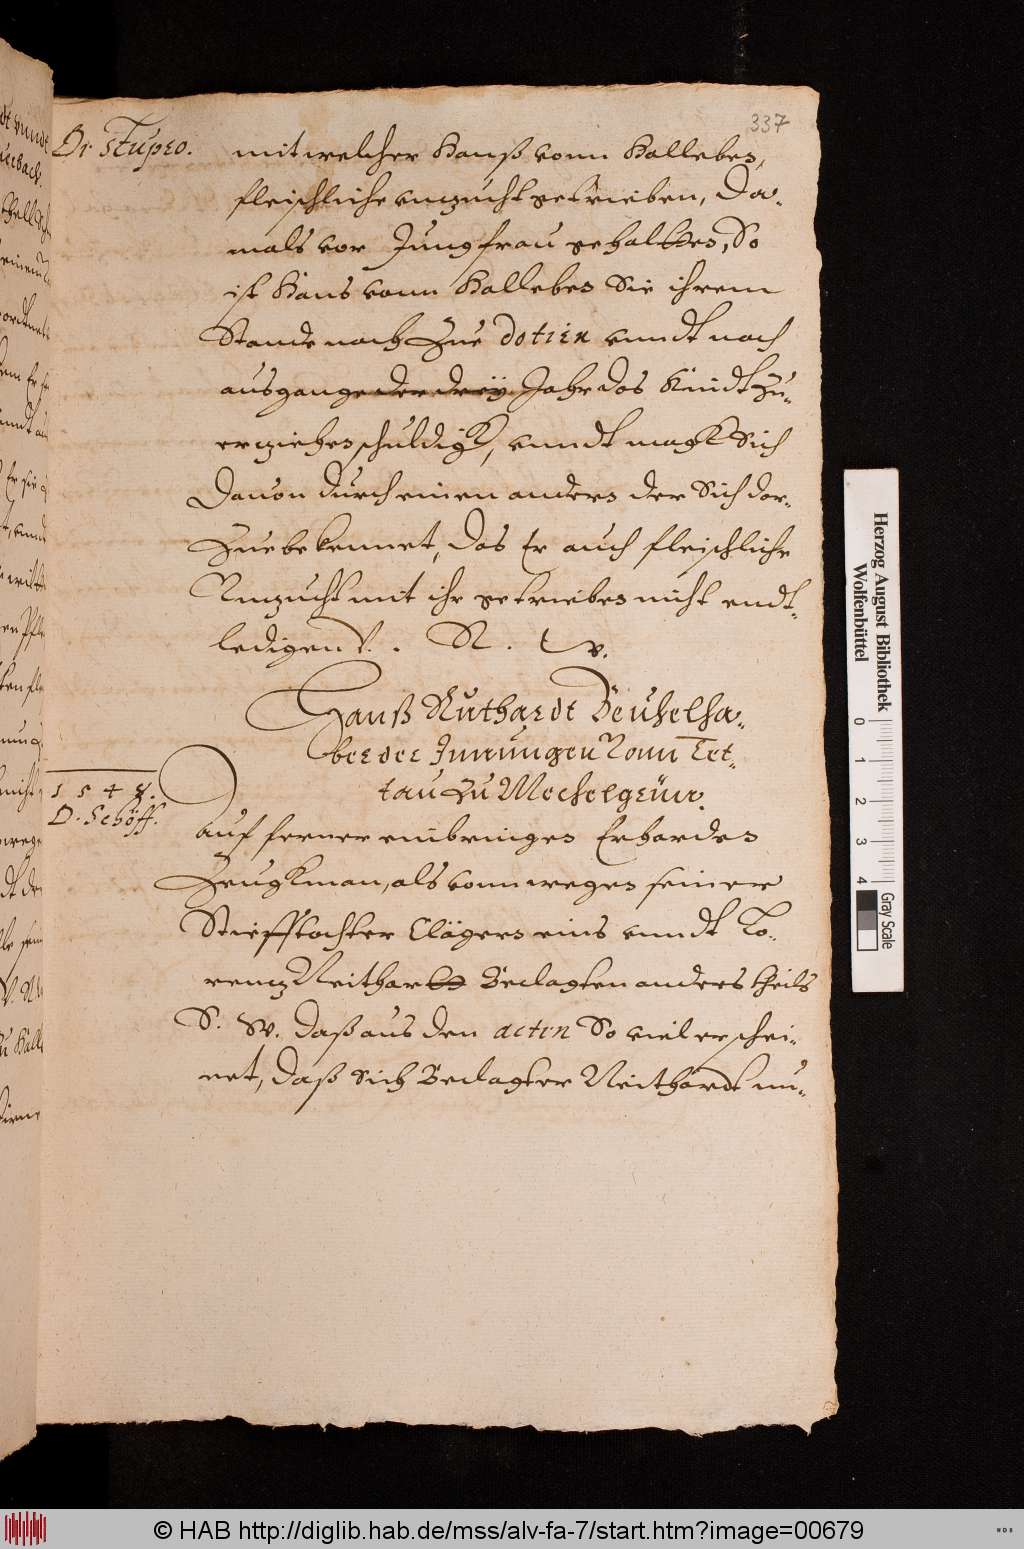 337
De stupro.
mit welcher Hanß vonn Halleben,
fleischliche vnzucht getrieben, Da-
mals vor Jungfrau gehalten, So
ist Hans vonn Halleben Sie ihrem
Stande nach Zue dotirn vnndt nach
ausgange der dreÿ Jahr das Kindt zu-
erziehen schuldigk, vnndt magk Sich
Dauon durch einen anders der Sich dar-
Zue bekennet, das Er auch fleischliche
Vnzucht mit ihr getrieben nicht endt-
ledigen V. R. W.
Hanß
haber der Irrungen vonn Tet-
tau zu
1548.
D. Schöff.
auf ferner einbringen Erharden
Zeugkman, als vonn wegen seiner
Stiefftochter Clägern eins vnndt Lo-
renz Neithartt Beclagten anders theils
S. W. Daß aus den actin So viel erschei-
net, daß Sich Beclagter Neithardt nu-
Herzog August Bibliothek
Wolfenbüttel
0 1 2 3 4
Gray Scale
© HAB http://diglib.hab.de/mss/alv-fa-7/start.htm?image=00679